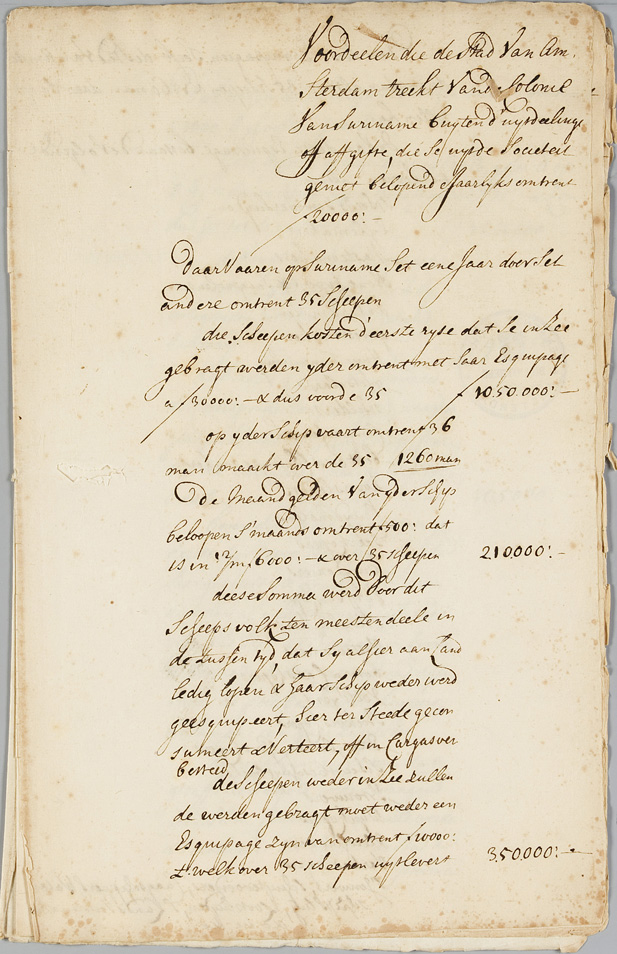 Voordeelen die de Stad Van Am=
sterdam treckt Vande Colonie
Van Suriname buyten d'uytdeelinge
off affgifte, die Se uyt de Societeit
geniet belopende Jaarlyks omtrent
ƒ20000:-
Daar Vaaren op Suriname het eene Jaar door het
andere omtrent 35 Scheepen
die Scheepen kosten d'eerste ryse dat se in Zee
gebragt werden yder omtrent met haar Esquipage
a ƒ30000:- & dus voor de 35 ƒ10.50.000:-
op yder Schip vaart omtrent 36
man maackt over de 35 1260 man
De Maandgelden Van yder Schip
beloopen S'maands omtrent ƒ500: dat
is in 12/m ƒ6000:- & over 35 scheepen 210.000:-
deese Somma werd Door dit
Scheeps volk ten meestendeele in
de tussen tyd, dat Sy alhier aan Land
ledig lopen & haar Schip weder werd
geesquipeert, hier ter Steede gecon
sumeert & Verteert, off in Cargas ver
besteed
de Scheepen weder in Zee zullen
de werden gebragt moet weder een
Esquipage zyn van omtrent ƒ10000:
t'welk over 35 scheepen uytlevert 350.000:-